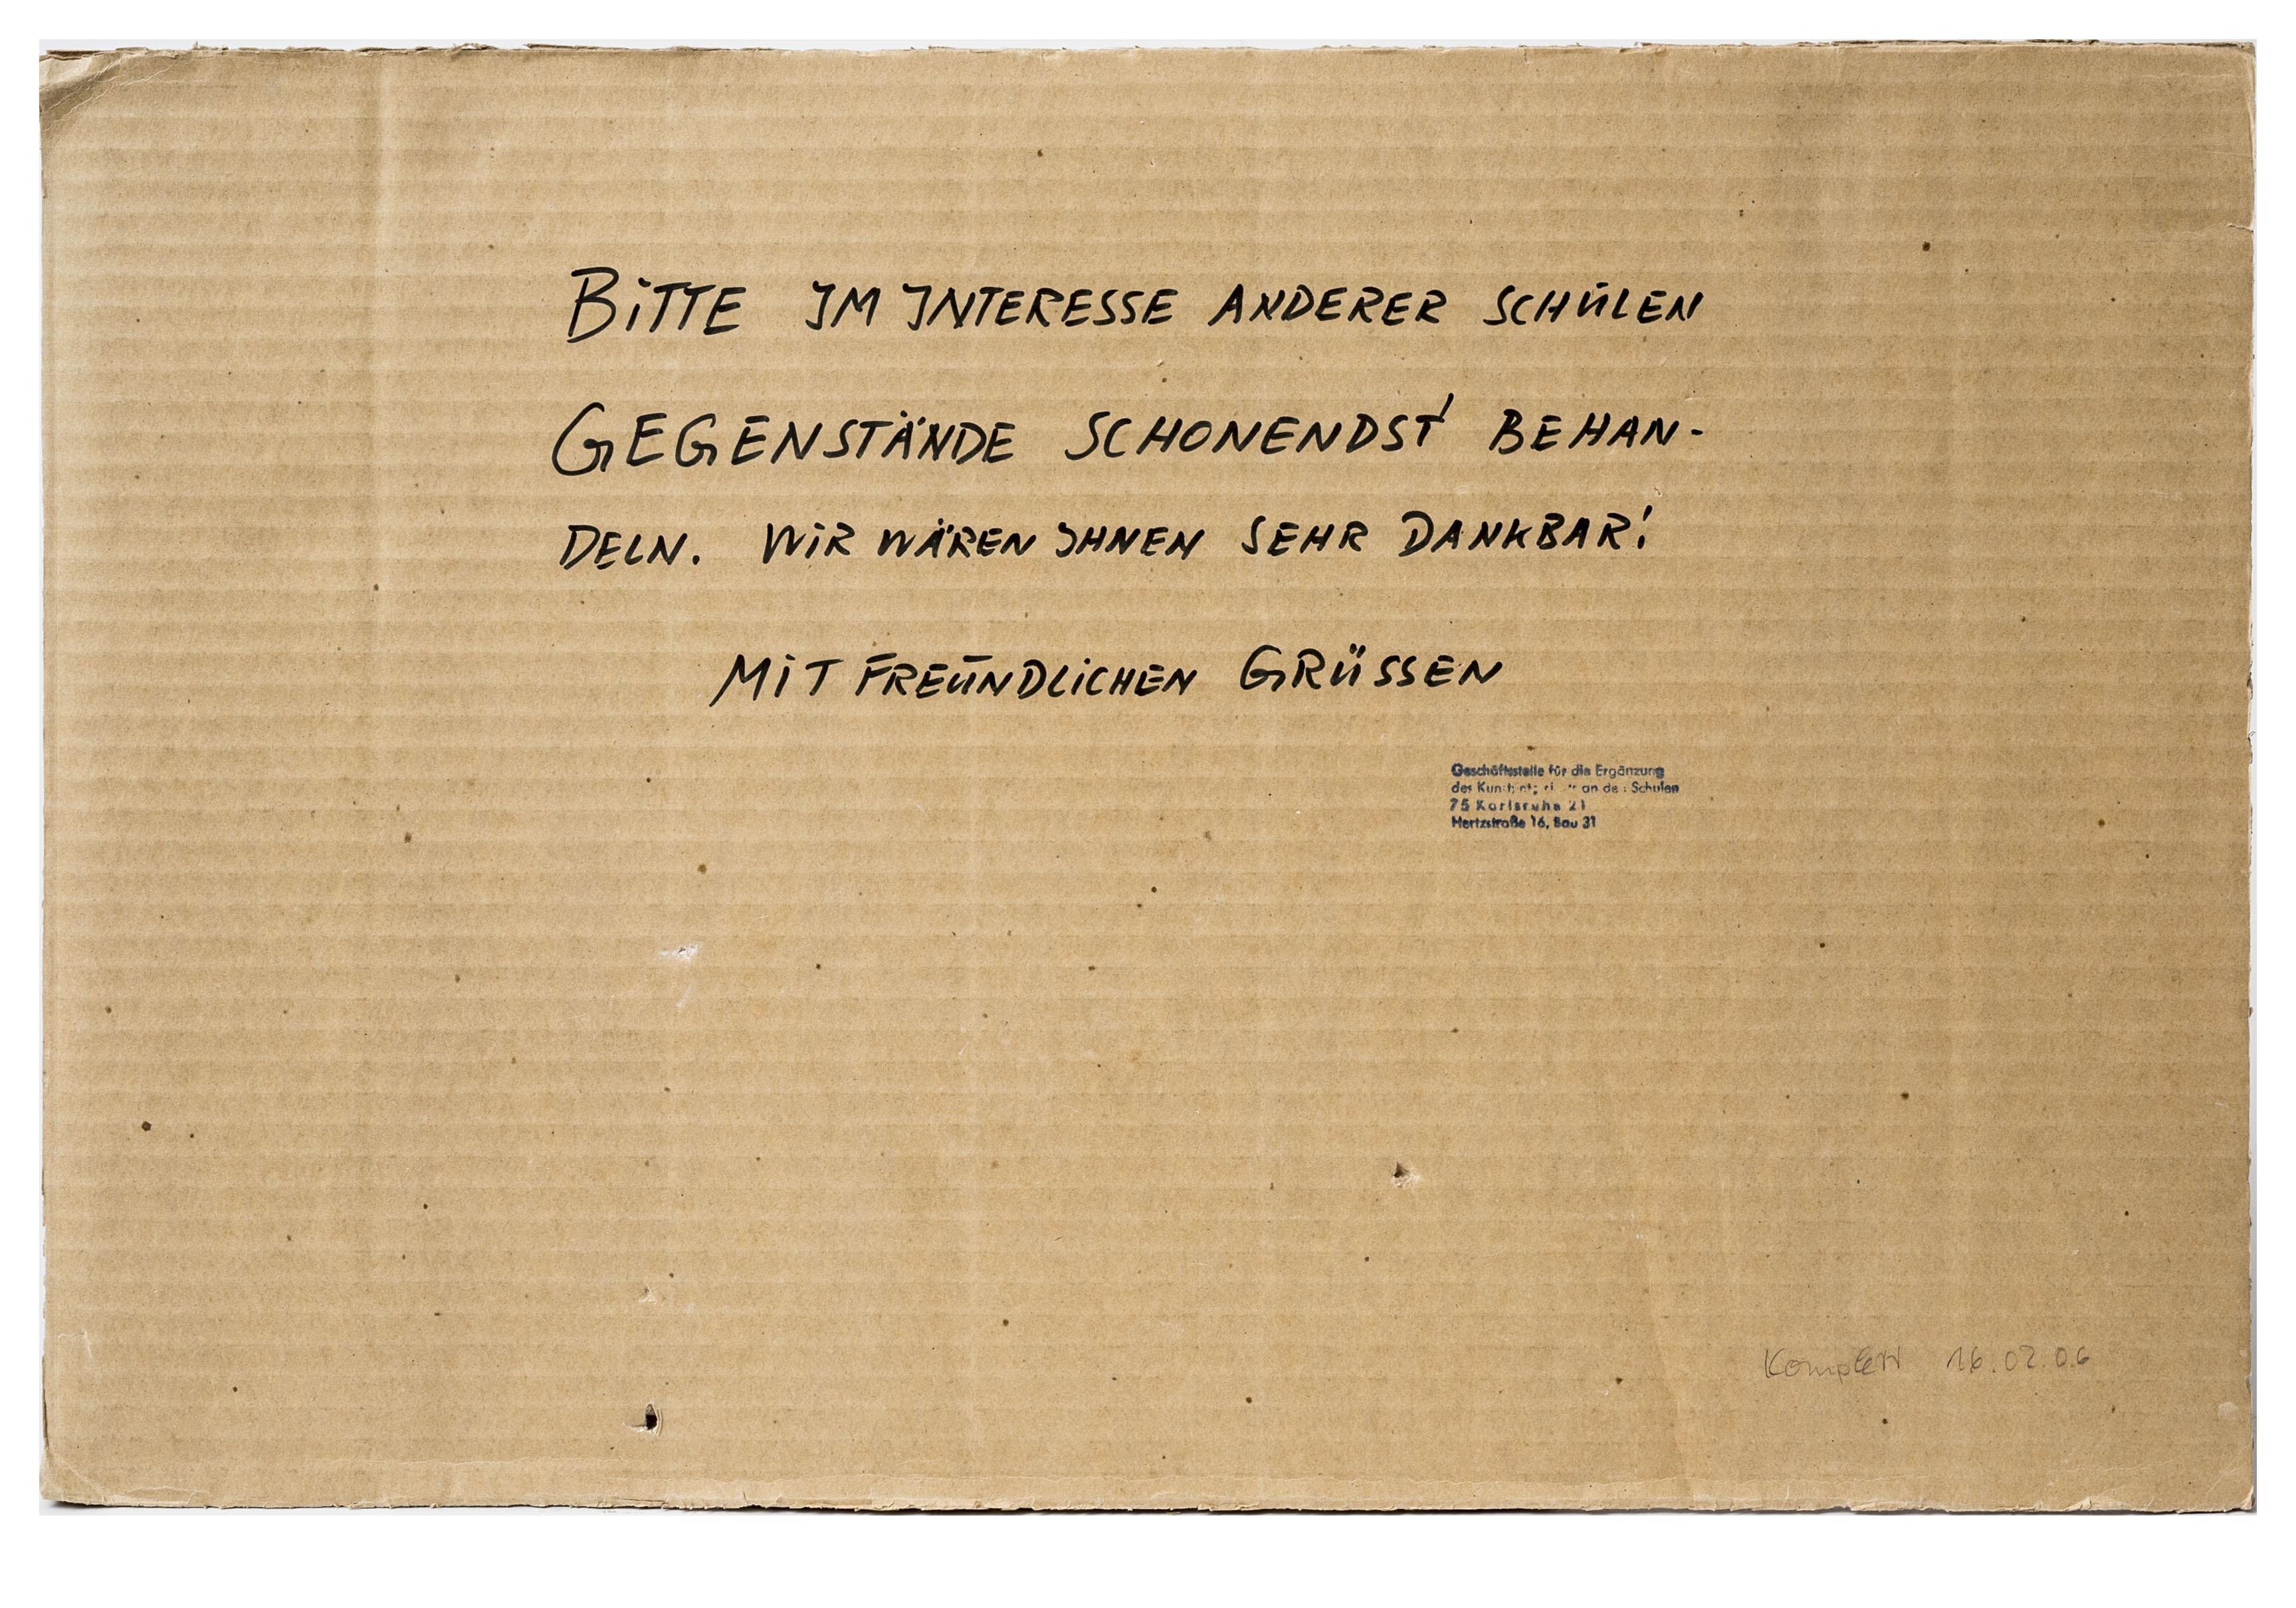 BiTTE IM INTERESSE ANDERER SCHULEN
GEGENSTÄNDE SCHONENDST BEHAN-
DELN. WiR WÄREN IHNEN SEHR DANKBAR!
MiT FREUNDLiCHEN GRÜSSEN
Geschäftsstelle für die Ergänzung
des an den Schulen
75 Karlsruhe 21
Hertzstraße 16, Bau 31
Komplett 16.02.06